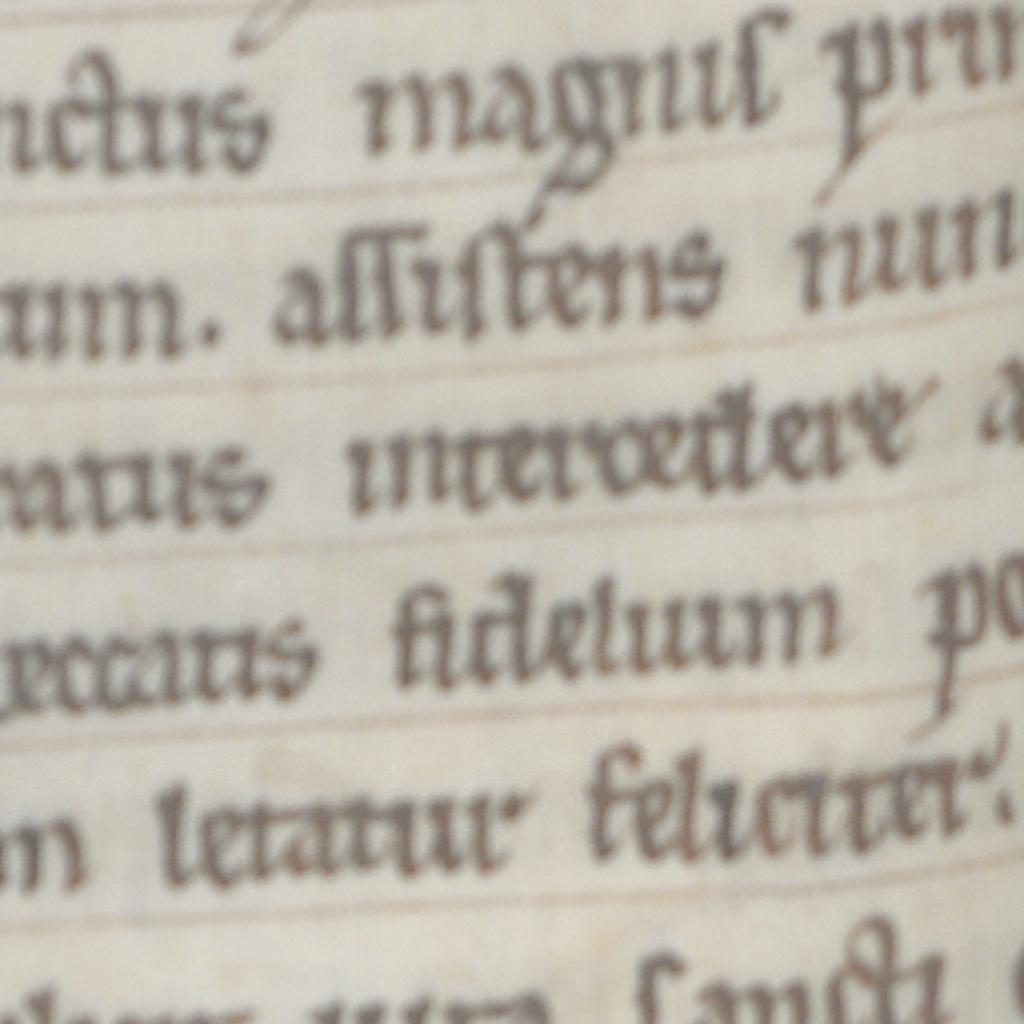 nctus magnus prin
um. assistens nun
ratus intercedere a
peccatis fidelium po
m letatur feliciter.
sancti